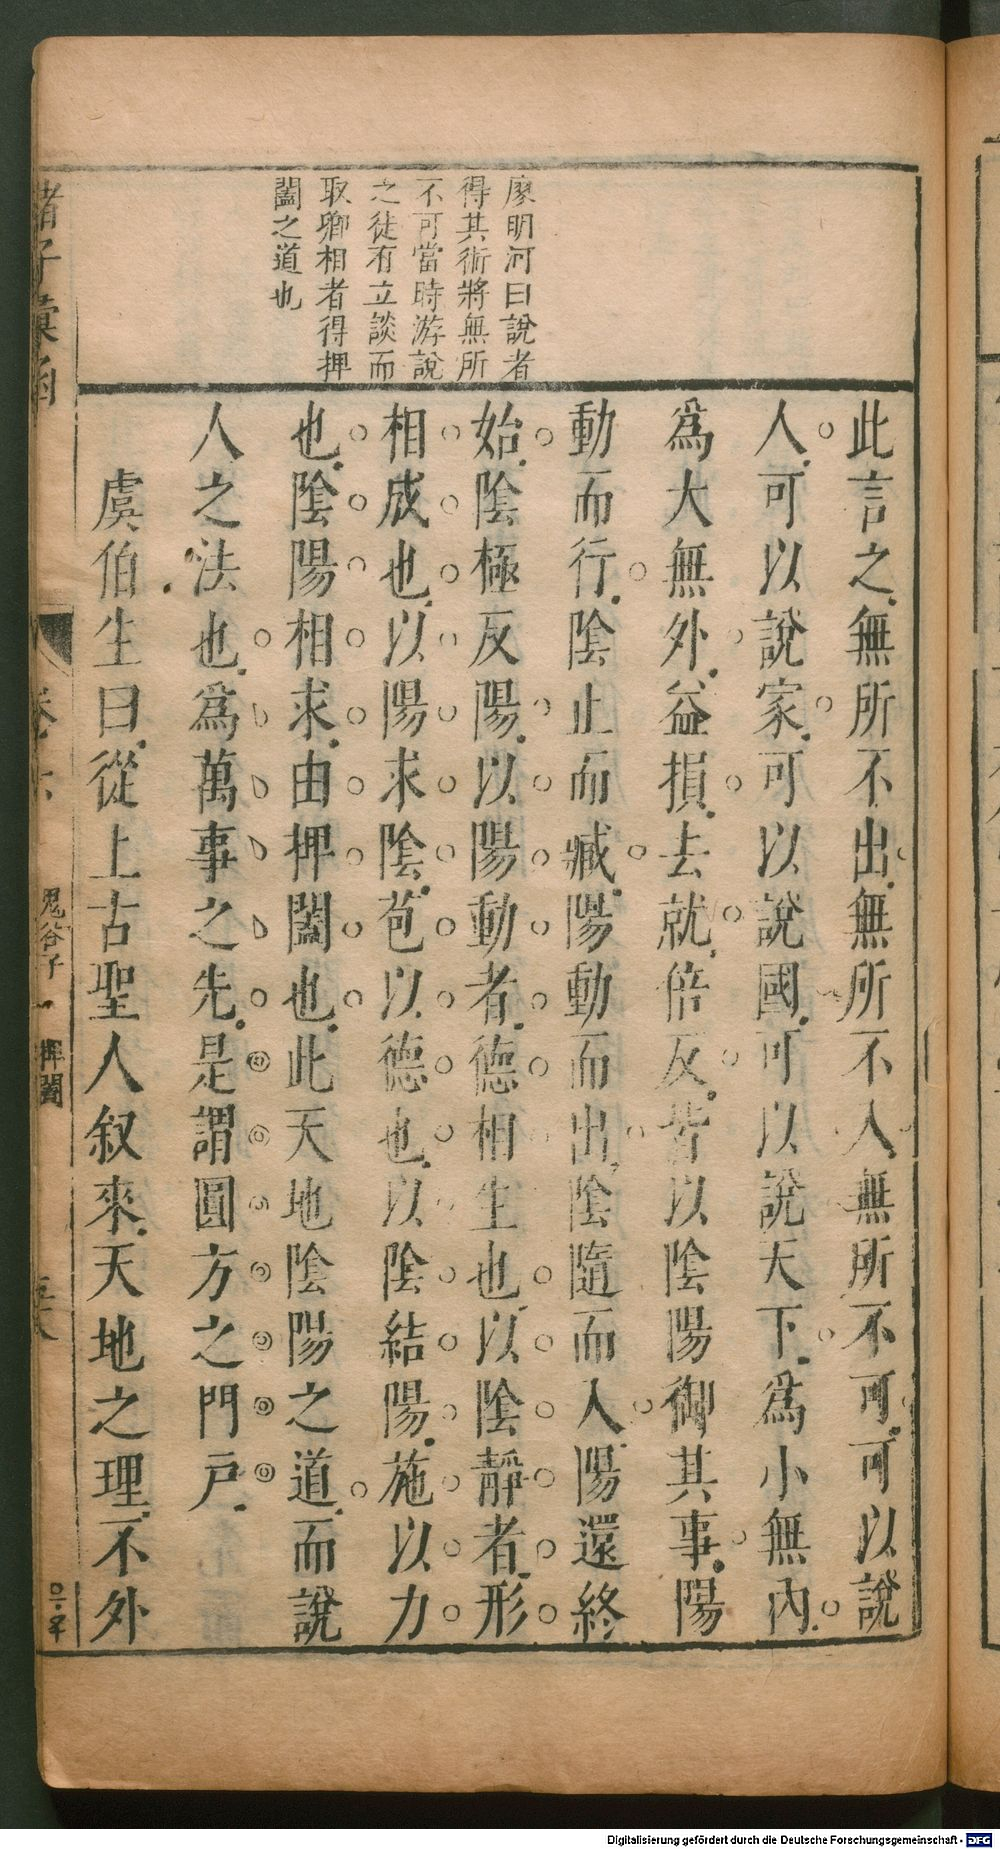 廖明河曰說者
得其術將無所
不可當時游說
之徒有立談而
取卿相者得捭
闔之道也
此言之無所不出無所不入無所不可可以說
人可以說家可以說國可以說天下爲小無內
爲大無外益損去就倍反皆以陰陽御其事陽
動而行陰止而臧陽動而出陰隨而入陽還終
始陰極反陽以陽動者德相生也以陰靜者形
相成也以陽求陰苞以德也以陰結陽施以力
也陰陽相求由捭闔也此天地陰陽之道而說
人之法也爲萬事之先是謂圓方之門戶
虞伯生曰從上古聖人叙來天地之理不外
諸子彙函
卷
鬼谷子一
捭闔
Digitalisierung gefördert durch die Deutsche Forschungsgemeinschaft - DFG